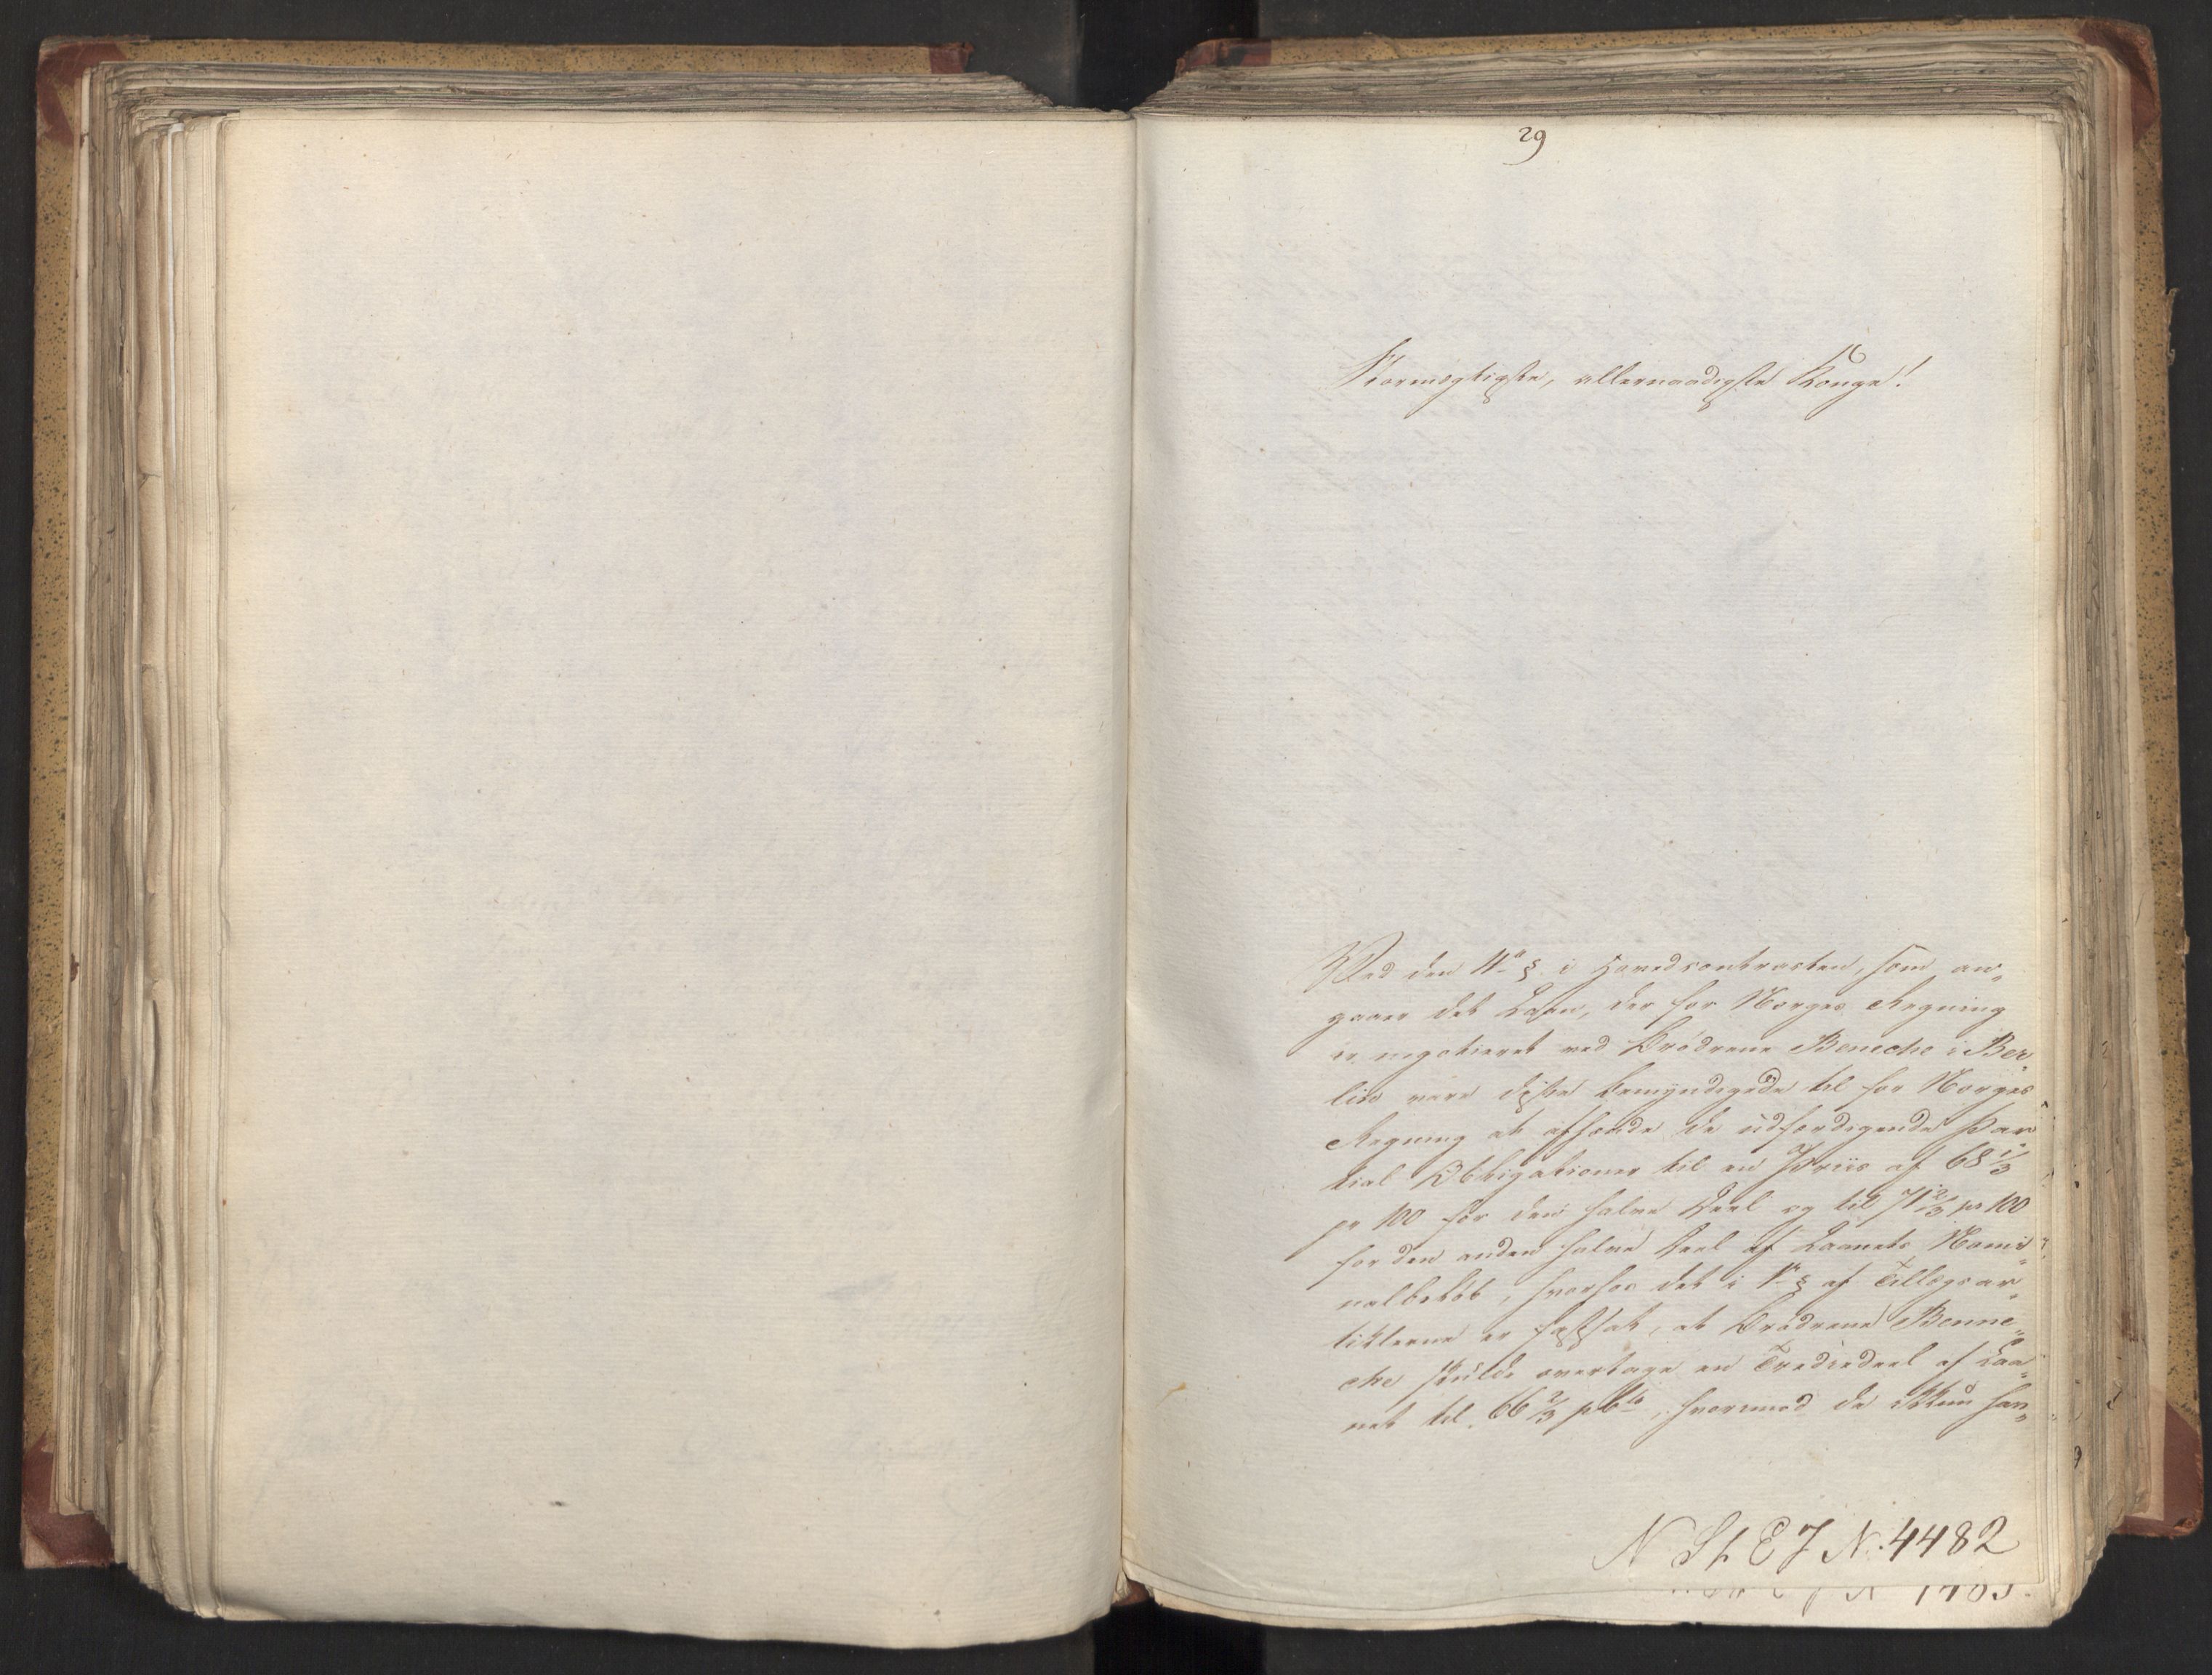 29
Stormægtigste, allernaadigste Konge!
Ved den 4de § i Hovedcontracten, som an„
gaaer det Laan, der for Norges Regning
er negotieret ved Brödrene Beneche i Ber„
lin vare disse bemyndigede til for Norges
Regning at afhænde de udfærdigende Par„
tial Obligationer til en Priis af 68 1/3
pr 100 for den halve Deel og til 71 2/3 pr 100
for den anden halve Deel af Laanets Nomi„
nalbeløb, hvorhos det i 1ste § af Tillægsar„
tiklerne er fastsat, at Brödrene Benne„
che skulde overtage en Trediedeel af Laa„
net til 66 2/3 pCto, hvorimod de ikkun hav„
N St E J N. 4482